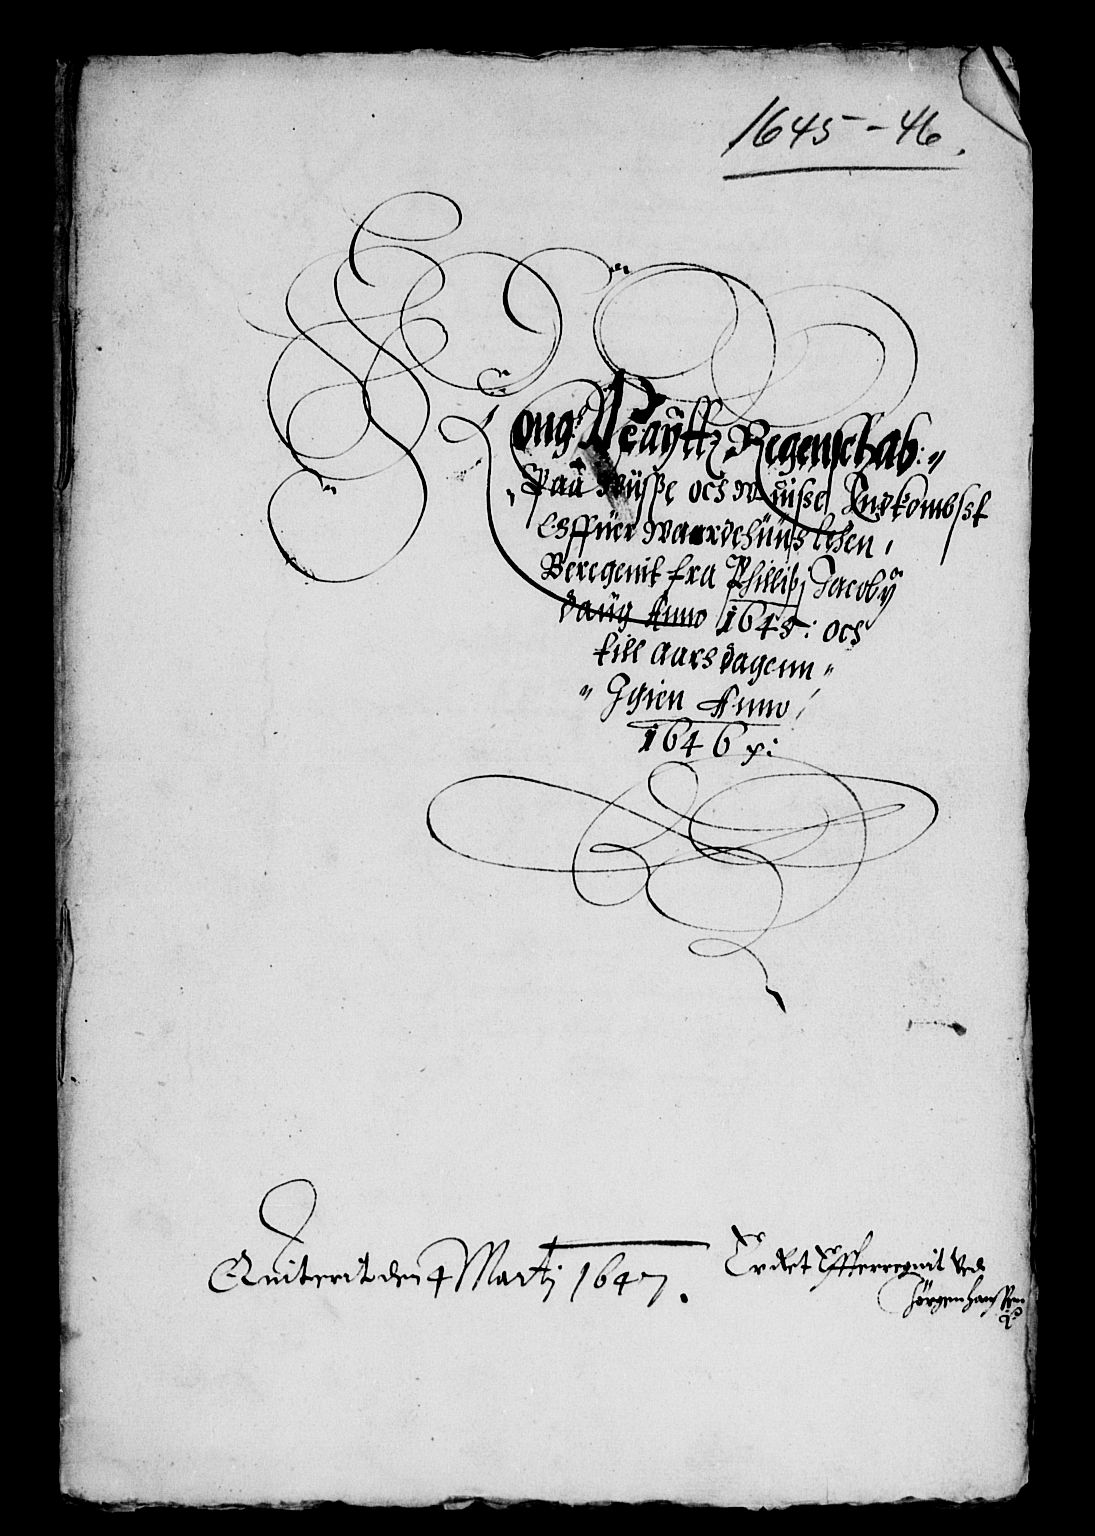 1645-46.
Kong: Mayttz Regenschab:
Paa Wiisße och Wuisse Indkombst
Offuer Wardehuuß Lehen,
Beregenit fra Philippi Jacobÿ
daug Anno 1645: och
till aarsdagenn
Igien Anno
1646 p:
Quiterit den 4 Martj 1647.
Er det Efferregnit ved
Jørgen Hanssen